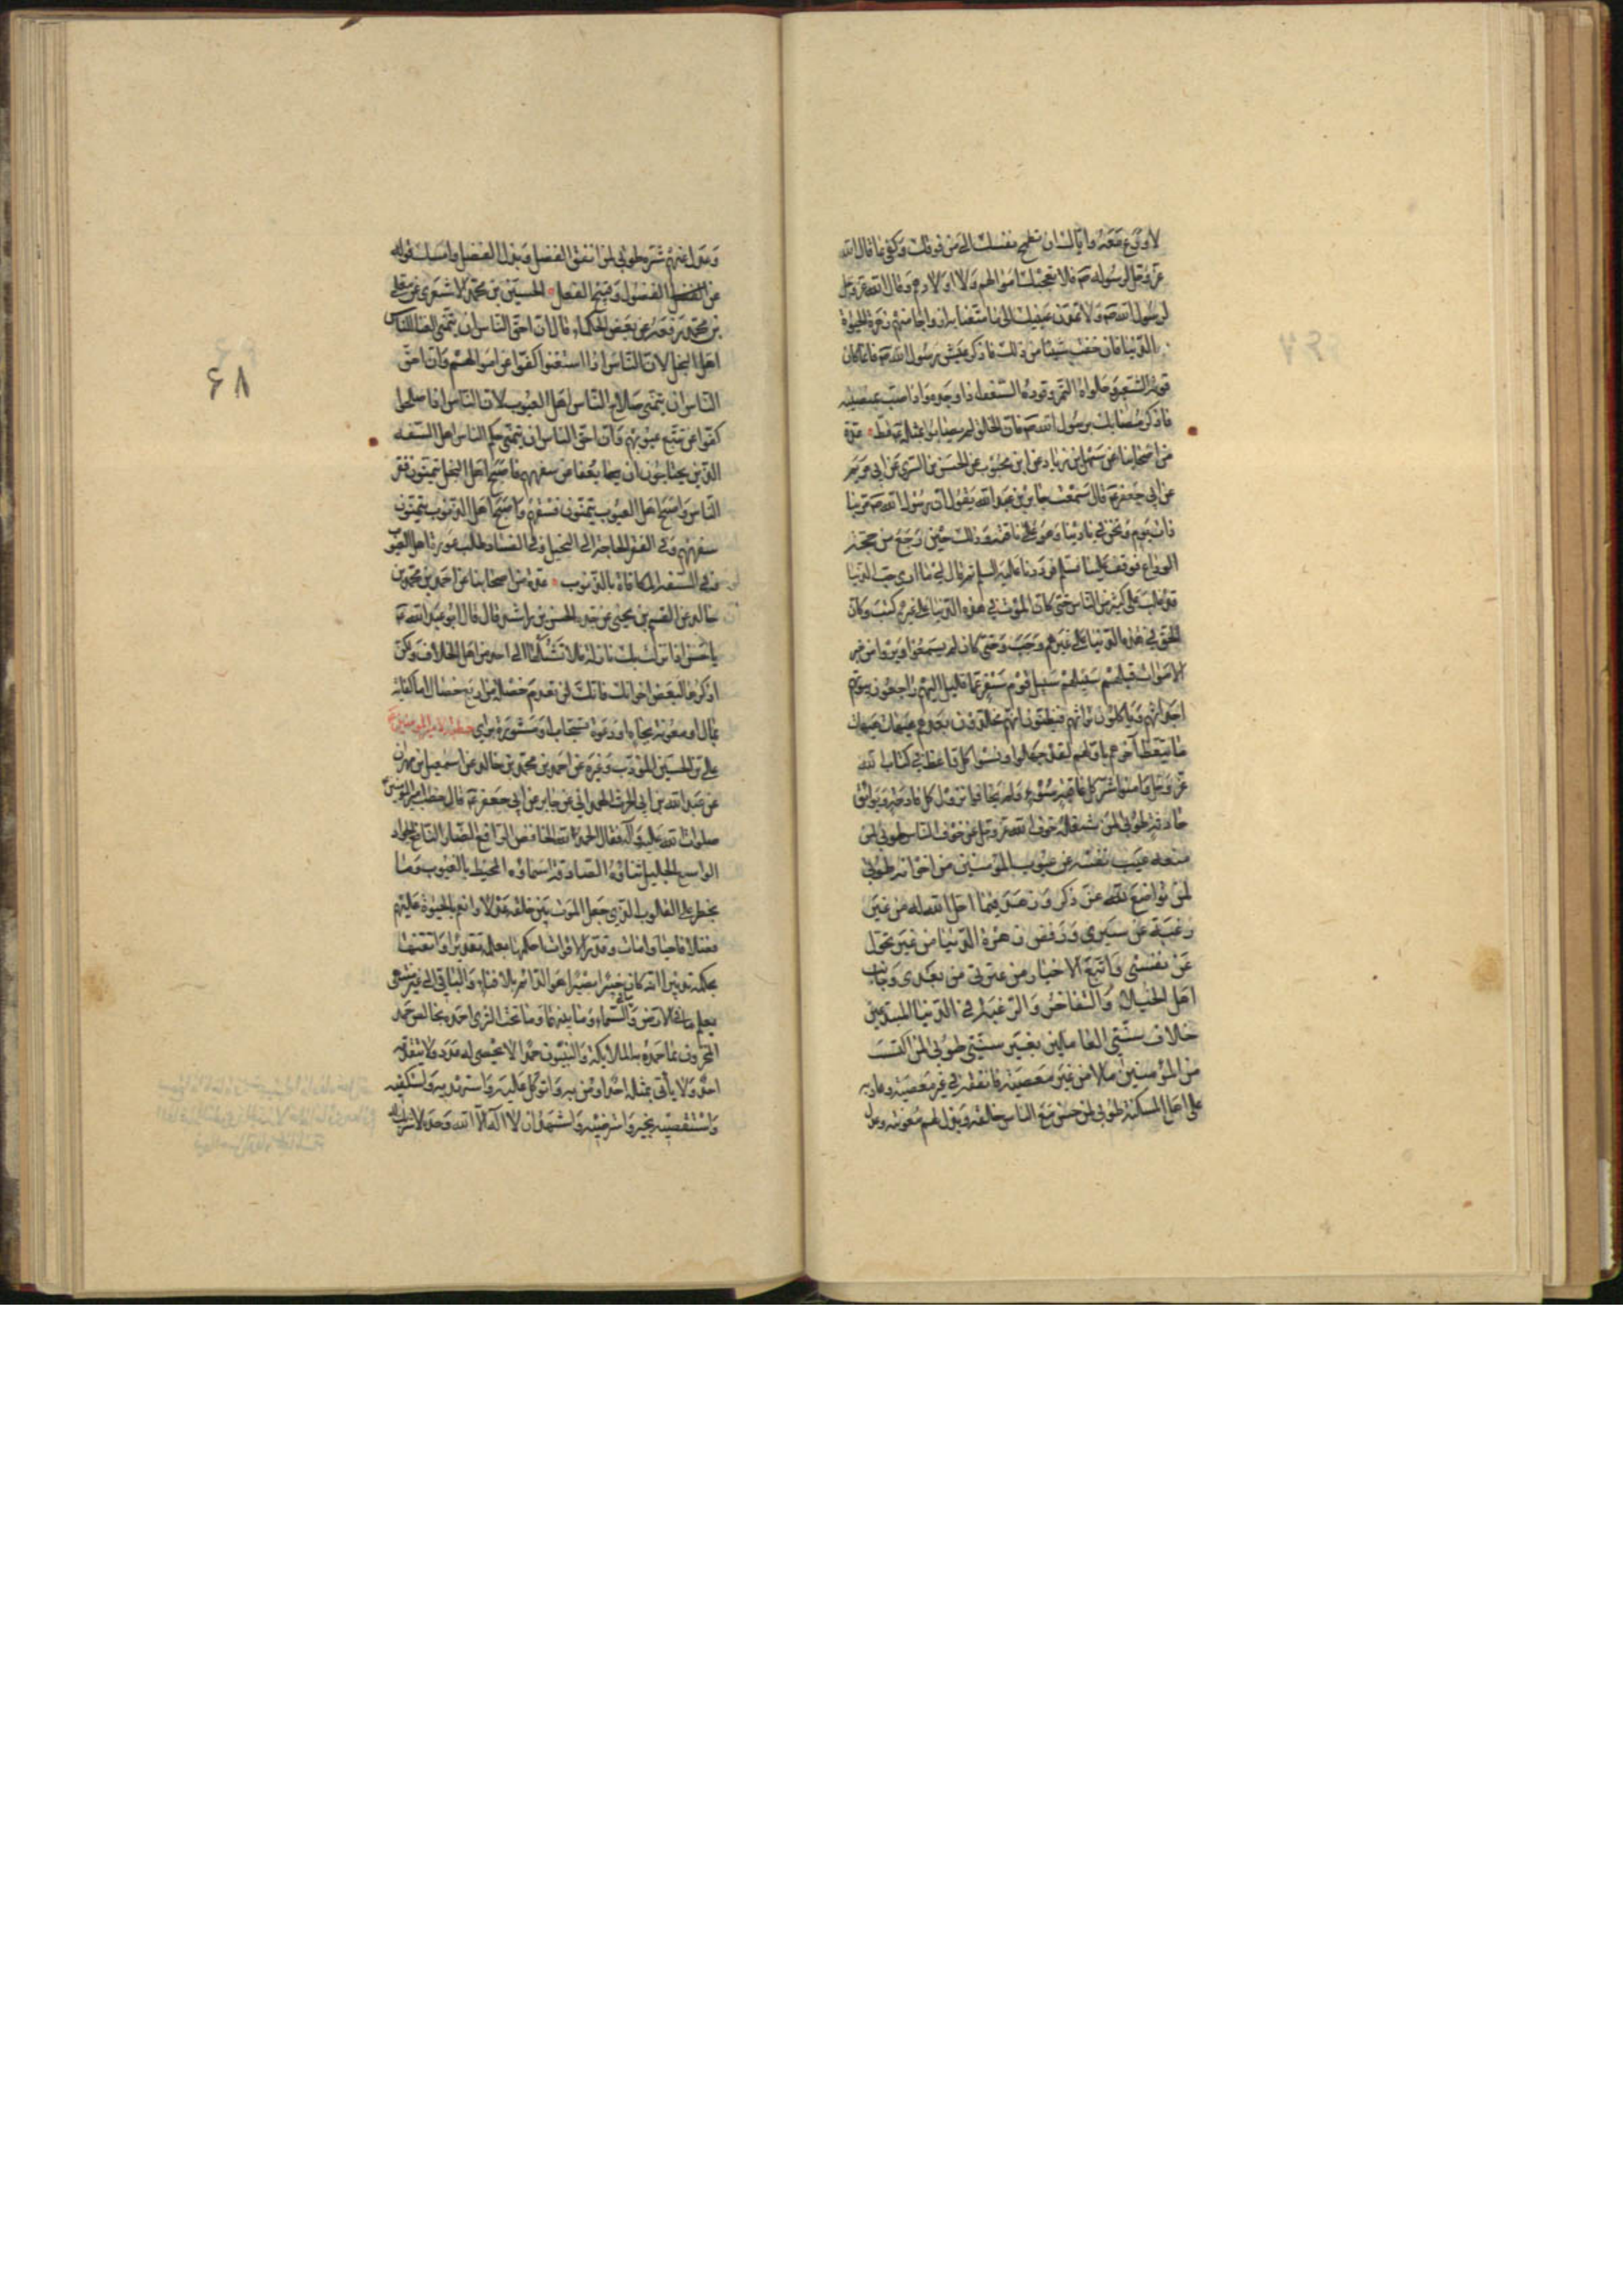 لا ورع معه وإياك ان تطمح نفسك الى من فوقك وكفى بما قال الله
عز وجل لرسوله ص فلا تعجبك اموالهم ولا اولادهم وقال الله عز وجل
لرسول الله ص ولا تمدن عينيك الى ما متعنا به ازواجا منهم زهرة الحيوة
الدنيا فان خفت شيئا من ذلك فاذكر عيش رسول الله ص فانما كان
قوته الشعير وحلواه التمر ووقوده السعف اذا وجده واذا اصبت بمصيبه
فاذكر مصابك برسول الله ص فان الخلق لم يصابوا بمثله قط عدة
من اصحابنا عن سهل ابن زياد عن ابن محبوب عن الحسن بن السري عن ابي مريم
عن ابي جعفر ع قال سمعت جابر بن عبد الله يقول ان رسول الله ص مر بنا
ذات يوم ونحن في نادينا وهو على ناقته وذلك حين رجع من حجة
الوداع فوقف علينا فسلم فرددنا عليه السلم ثم قال لي ما ارى حب الدنيا
قد غلب على كثير من الناس حتى كان الموت في هذه الدنيا على غيرهم كتب وكان
الحق في هذه الدنيا على غيرهم وجب وحتى كان لم يسمعوا ويروا من خبر
الاموات قبلهم سبيلهم سبيل قوم سفر عما قليل اليهم راجعون بيوتهم
اجداثهم وياكلون تراثهم فيظنون انهم مخلدون بعدهم هيهات هيهات
ما يتعظ آخرهم باولهم لقد جهلوا ونسوا كل واعظ في كتاب الله
عز وجل وامنوا شر كل عاقبة سوء ولم يخافوا نزول كل فادحة وبوائق
حادثة طوبى لمن شغله خوف الله عز وجل عن خوف الناس طوبى لمن
منعه عيب نفسه عن عيوب المؤمنين من اخوانه طوبى
لمن تواضع لله عز ذكره وزهد فيما احل الله له من غير
رغبة عن سيرتي ورفض زهرة الدنيا من غير تحول
عن نفسي واتبع الاخيار من عترتي من بعدي وجانب
اهل الخيلاء والتفاخر والرغبة في الدنيا المبتدعين
خلاف سنتي العاملين بغير سنتي طوبى لمن اكتسب
من المؤمنين مالا من غير معصية فانفقه في غير معصية وعاد به
على اهل المسكنة طوبى لمن حسن مع الناس خلقه وبذل لهم معونته وعدل
وعدل عنهم شره طوبى لمن انفق الفضل وبذل الفضل وامسك قوله
عن الفضول وقبيح الفعل الحسين بن محمد الاشعري عن معلى
بن محمد رفعه عن بعض الحكماء قال ان احق الناس ان يتمنى الغنا للناس
اهل البخل لان الناس اذا استغنوا كفوا عن اموالهم وان احق
الناس ان يتمنى صلاح الناس اهل العيوب لان الناس اذا صلحوا
كفوا عن تتبع عيوبهم وان احق الناس ان يتمنى حلم الناس اهل السفه
الذين يحتاجون ان يعفا عن سفههم فاصبح اهل البخل يتمنون فقر
الناس واصبح اهل العيوب يتمنون فسقهم واصبح اهل الذنوب يتمنون
سفههم وفي الفقر الحاجة الى البخيل وفي الفساد طلب عورة اهل العيوب
وفي السفه المكافاة بالذنوب عدة من اصحابنا عن احمد بن محمد بن
خالد عن القسم بن يحيى عن جده الحسن بن راشد قال قال ابو عبد الله ع
يا حسن اذا نزلت بك نازلة فلا تشكها الى احد من اهل الخلاف ولكن
اذكرها لبعض اخوانك فانك لن تعدم خصلة من اربع خصال اما كفاية
بمال او معونة بجاه او دعوة تستجاب او مشورة براي خطبة لامير المومنين ع
علي بن الحسين المؤدب وغيره عن احمد بن محمد بن خالد عن اسمعيل بن مهران
عن عبد الله بن ابي الحرث الهمداني عن جابر عن ابي جعفر ع قال خطب امير المومنين
صلوات الله عليه وآله فقال الحمد لله الخافض الرافع الضار النافع الجواد
الواسع الجليل ثناؤه الصادقة اسماؤه المحيط بالغيوب وما
يخطر على القلوب الذي جعل الموت بين خلقه عدلا وانعم بالحيوة عليهم
فضلا فاحيا وامات وقدر الاقوات احكمها بعلمه تقديرا واتقنها
بحكمته تدبيرا انه كان خبيرا بصيرا هو الدائم بلا فناء والباقي الى غير منتهى
يعلم ما في الارض وما في السماء وما بينهما وما تحت الثرى احمده بخالص حمده
المخزون بما حمده به الملائكة والنبيون حمدا لا يحصى له عدد ولا يتقدمه
احد ولا يأتي بمثله احد اومن به واتوكل عليه واستهديه واستكفيه
واستقضيه بخير واسترضيه واشهد ان لا اله الا الله وحده لا شريك له
۶۸